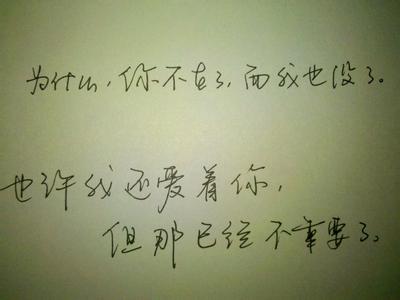 为什么,你不在了,而我也没了。
也许我还爱着你,
但那已经不重要了。